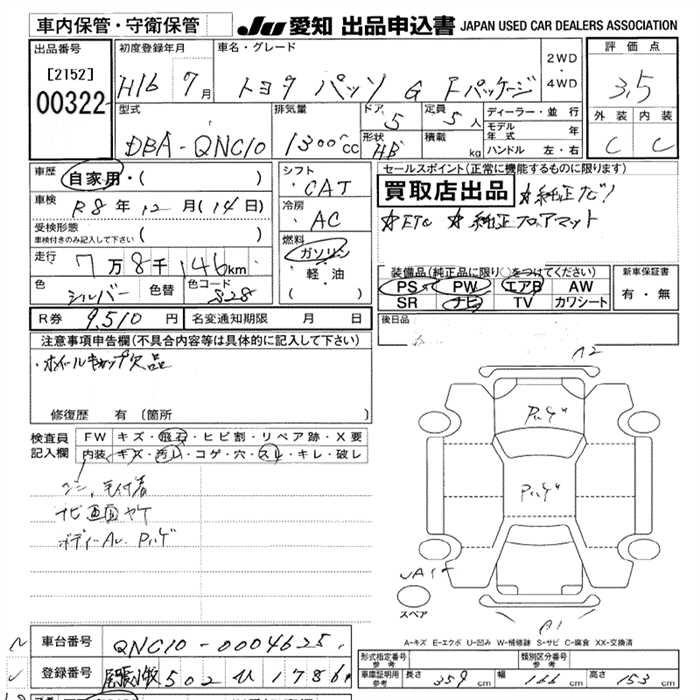 車内保管・守衛保管 JU 愛知 出品申込書 JAPAN USED CAR DEALERS ASSOCIATION
出品番号 [2152] 00322
初度登録年月 H16 7月
車名・グレード トヨタ パッソ G Fパッケージ
2WD・4WD
評価点 3.5
外装 C 内装 C
型式 DBA-QNC10
排気量 1300cc
ドア 5
形状 HB
定員 5人
積載 kg
ディーラー・並行
モデル年式 年
ハンドル 左・右
車歴 自家用・( )
車検 R8年12月(14日)
受検形態 車検付きのみ記入して下さい ( )
走行 7万8千146km
色 シルバー 色替 色コード S28
シフト CAT
冷房 AC
燃料 ガソリン・軽油 ( )
セールスポイント(正常に機能するものに限ります)
買取店出品 ☆純正ナビ
☆ETC ☆純正フロアマット
装備品(純正品に限り○をつけてください)
PS PW エアB AW
SR ナビ TV カワシート
新車保証書 有・無
R券 9,510円 名変通知期限 月 日
後日品
注意事項申告欄(不具合内容等は具体的に記入して下さい)
・ホイールキャップ欠品
修復歴 有(箇所
検査員記入欄
FW キズ・飛石・ヒビ割・リペア跡・X要
内装 キズ・汚レ・コゲ・穴・スレ・キレ・破レ
ナビ画面ヤケ
A2
A1
スペア
A-キズ E-エクボ U-凹み W-補修跡 S-サビ C-腐食 XX-交換済
車台番号 QNC10-0004625
登録番号 502 ひ 1786
形式指定番号 参考 類別区分番号 参考
車庫証明用 参考 長さ 359cm 幅 166cm 高さ 153cm